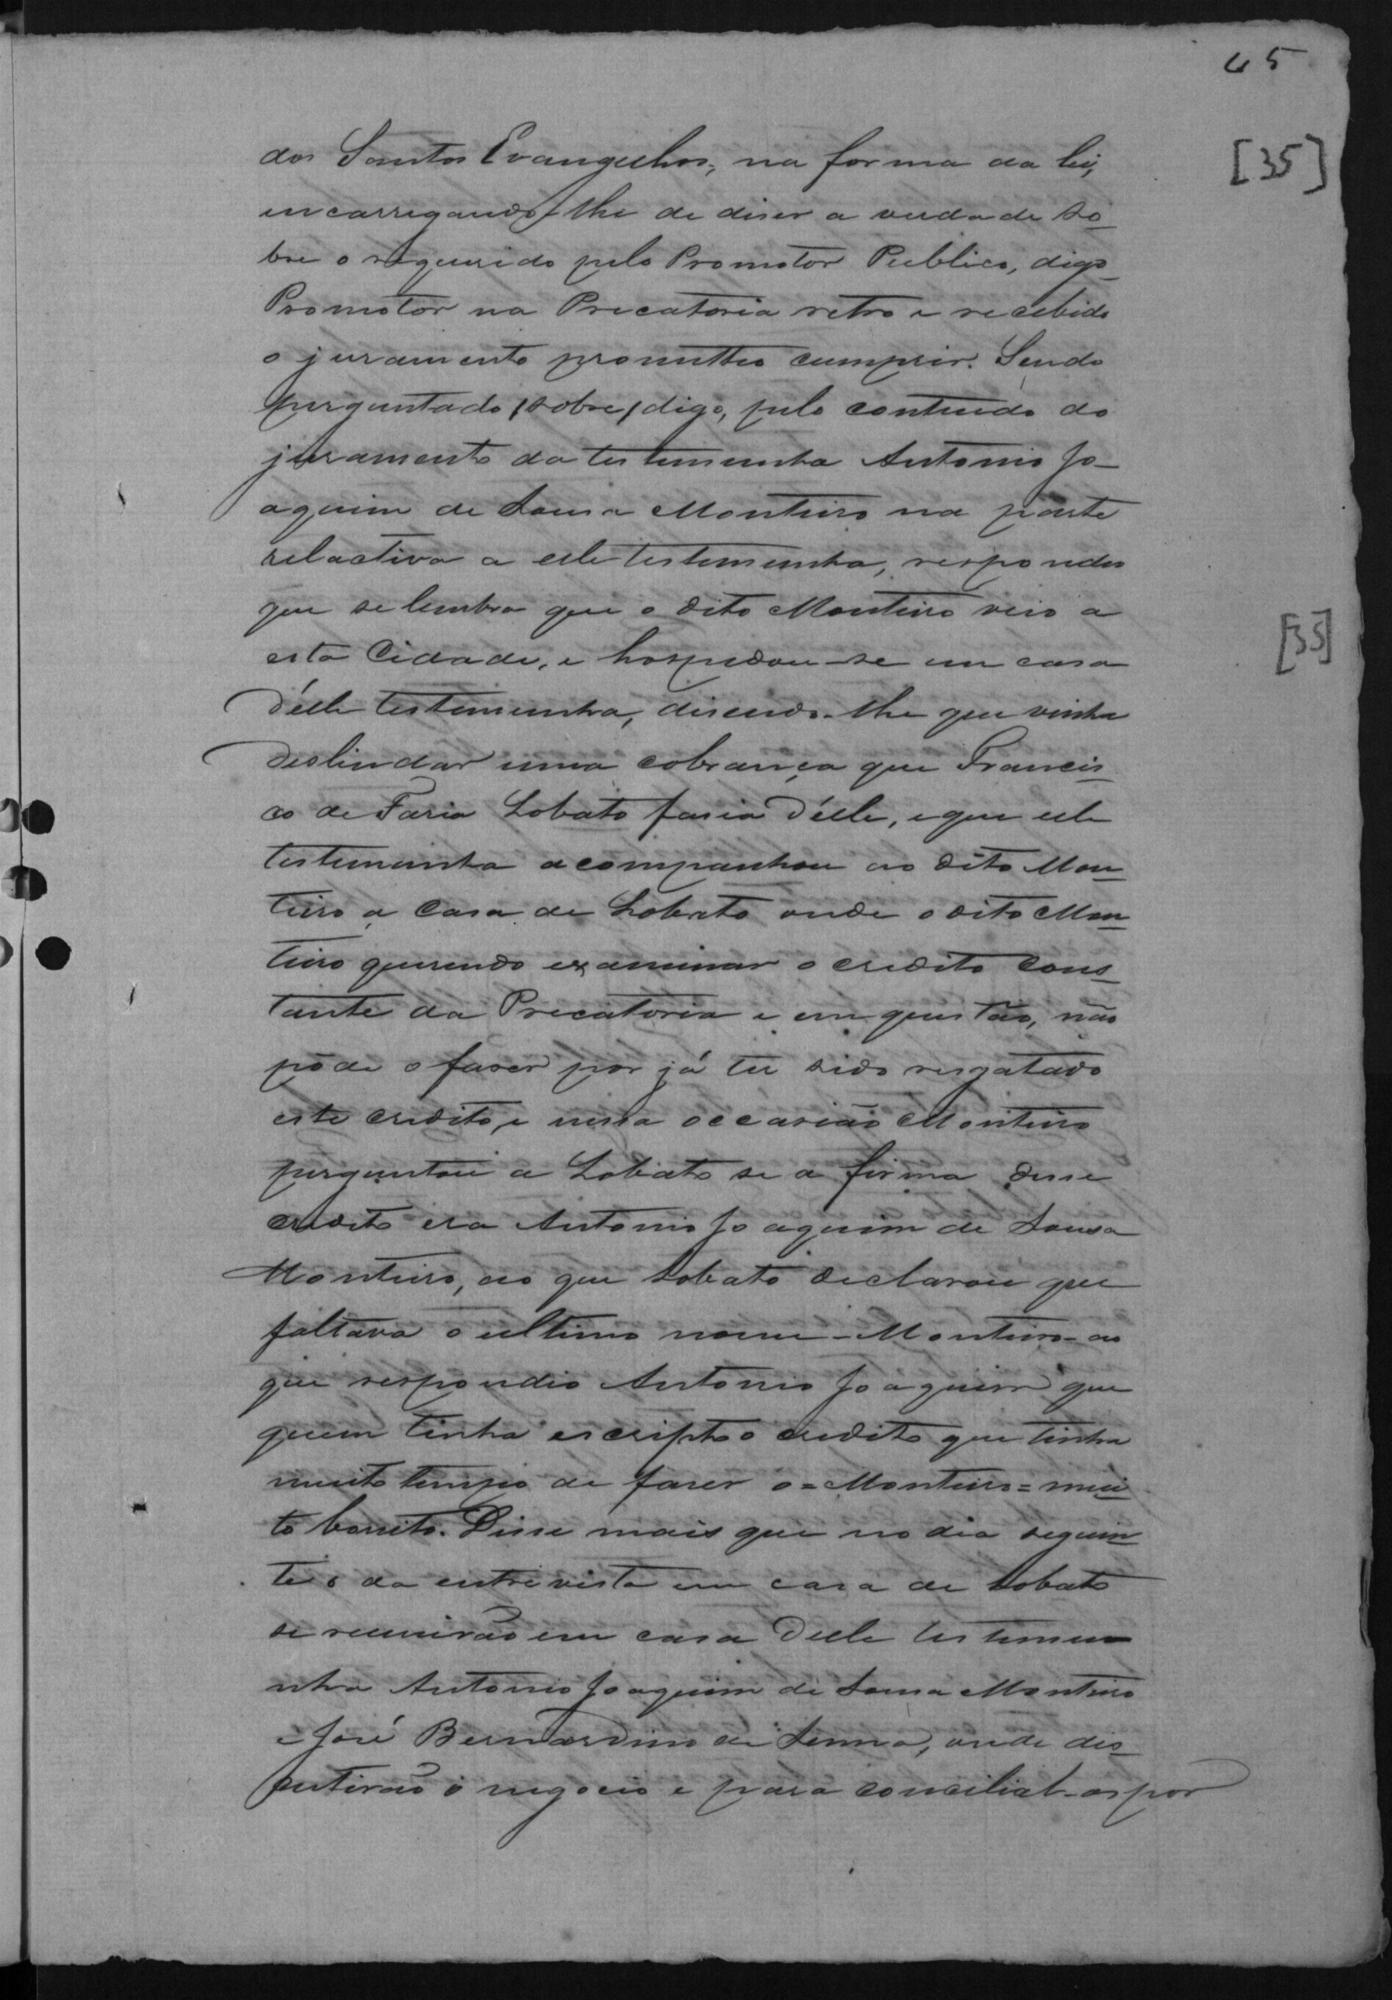 45
[35]
dos Santos Evangelhos, na forma da lei,
encarregando-lhe de diser a verdade so-
bre o requerido pelo Promotor Publico, digo
Promotor na Precatoria retro e recebido
o juramento prometteo cumprir. Sendo
perguntado /sobre/ digo, pelo contheudo do
juramento da testemunha Antonio Jo-
aquim de Sousa Monteiro na parte
relactiva a elle testemunha, respondeo
que se lembra que o dito Monteiro veio a
esta Cidade, e hospedou-se em casa
[35]
d'élle testemunha, disendo-lhe que vinha
deslindar uma cobrança que Francis-
co de Faria Lobato fasia d'élle, e que elle
testemunha acompanhou ao dito Mon-
teiro a casa de Lobato onde o dito Mon-
teiro querendo examinar o credito cons-
tante da Precatoria e em questão, não
pôde o faser por já ter sido resgatado
este credito, e nessa occasião Monteiro
perguntou a Lobato se a firma desse
credito era Antonio Joaquim de Sousa
Monteiro, ao que Lobato declarou que
faltava o ultimo nome - Monteiro - ao
que respondeo Antonio Joaquim que
quem tinha escripto o credito que tinha
muito tempo de faser o = Monteiro = mui-
to bonito. Disse mais que no dia seguin-
te o da entrevista em casa de Lobato
se reunirão em casa delle testemu-
nha Antonio Joaquim de Sousa Monteiro
e José Bernardino de Senna, onde dis-
cutirão o negocio e para concilial-os por